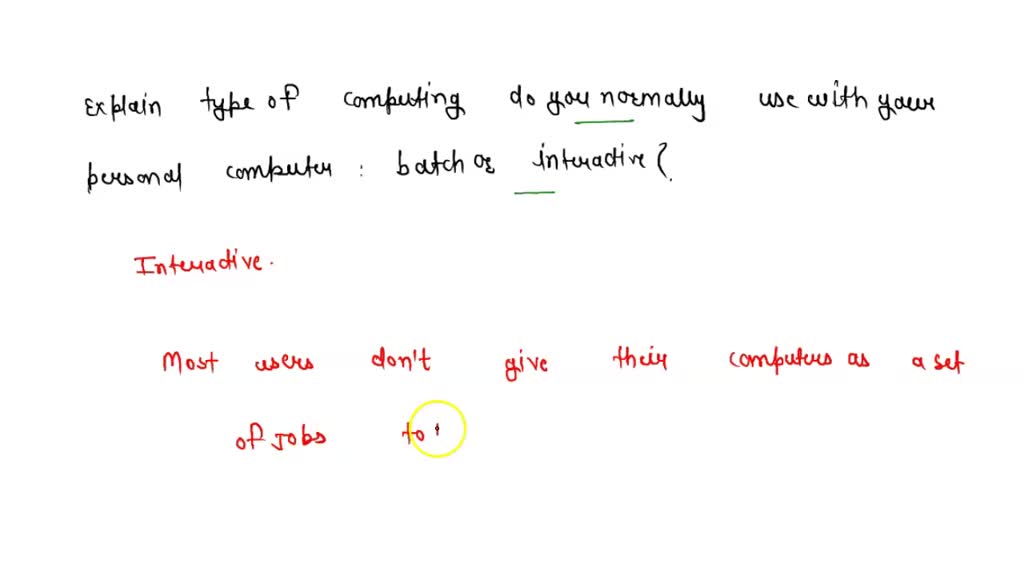 Explain type of computing do you normally use with your
personal computer : batch or interactive ?
Interactive.
Most users don't give their computers as a set
of jobs to